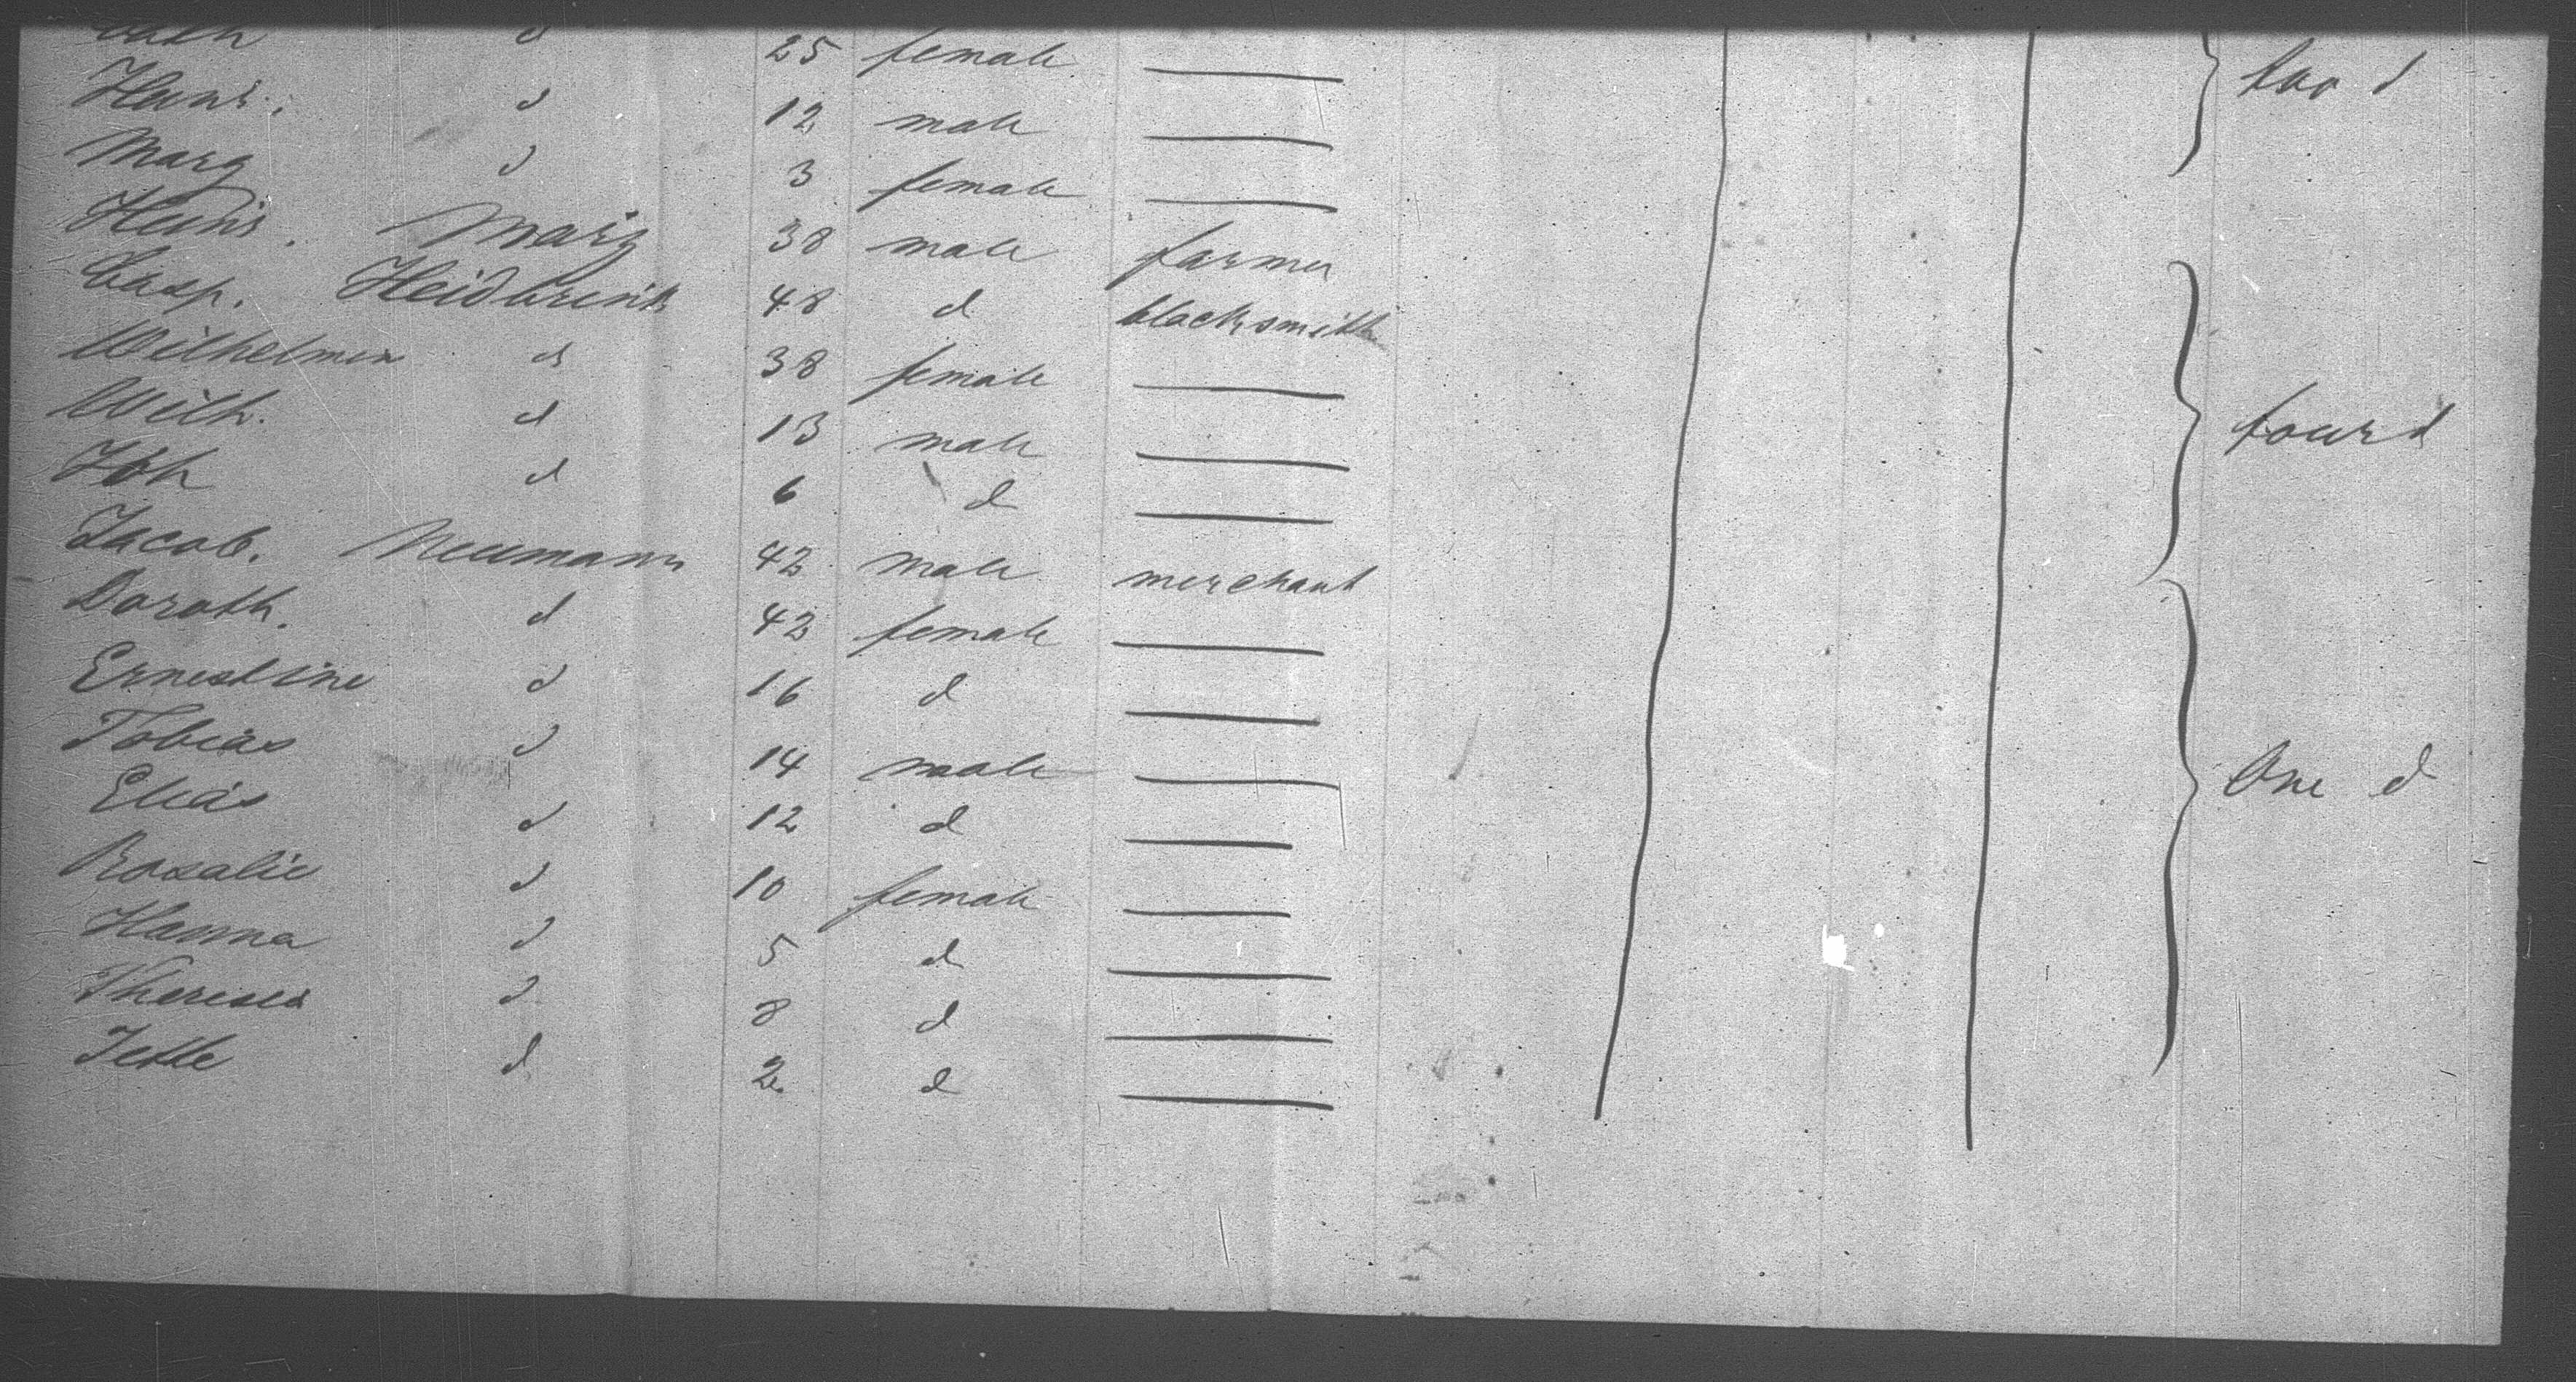 Cath d 25 female
Heinr. d 12 male two d
Marg d 3 female
Heinr. 38 male farmer
Casp. 48 d blacksmith
Wilhelmin d 38 female
Wilh. d 13 male four d
Joh d 6 d
Jacob. Neumann 42 male merchant
Doroth. d 42 female
Ernestine d 16 d
Tobias d 14 male One d
Elias d 12 d
Rosalie d 10 female
Hanna d 5 d
Theresia d 8 d
Jette d 2 d